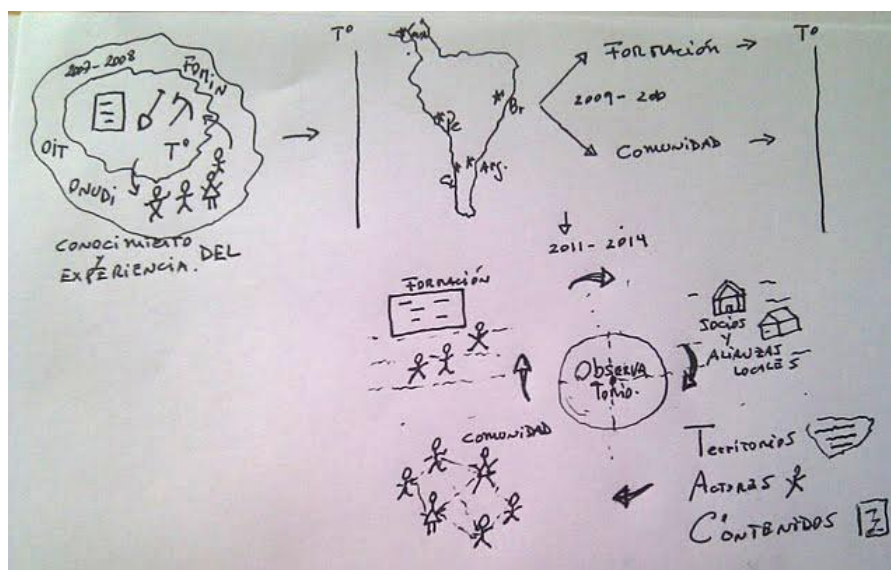 2007-2008
FOMIN
OIT
ONUDI
T°
CONOCIMIENTO
Y
EXPERIENCIA. DEL
T°
Br
Arg.
FORMACIÓN
2009-200
COMUNIDAD
T°
2011-2014
FORMACIÓN
SOCIOS
Y
ALIANZAS
LOCALES
Observa
Torio.
COMUNIDAD
TERRITORIOS
ACTORES
CONTENIDOS